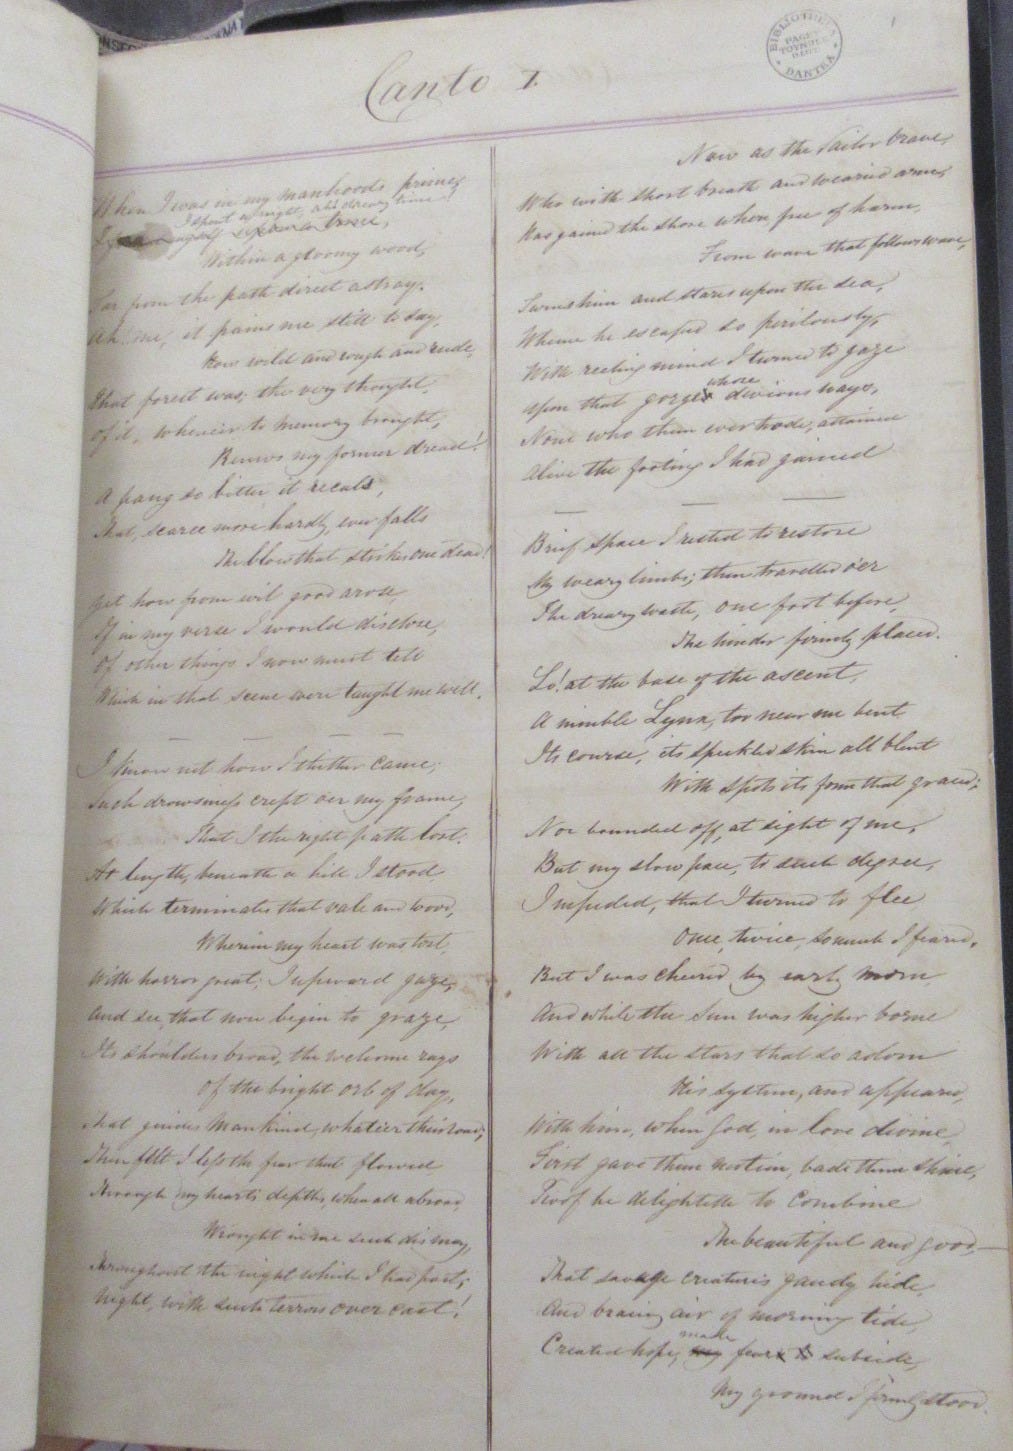 Canto I
BIBLIOTHECA
PAGET
TOYNBEE
DANTEA
1
When I was in my manhoods prime,
I spent a night, ah! dreary time!
Within a gloomy wood,
Far from the path direct astray.
Ah me, it pains me still to say,
How wild and rough and rude,
That forest was; the very thought
of it, whenever to memory brought,
Renews my former dread!
A pang so bitter it recals,
That, scarce more hardly, ever falls
The blow that strikes one dead!
Yet how from evil good arose,
If in my verse I would disclose,
Of other things I now must tell
Which in that scene were taught me well.
I know not how I thither came;
Such drowsiness crept oer my frame,
That I the right path lost.
At length, beneath a hill I stood
Which terminates that vale and wood,
Wherein my heart was tost
With horror great; I upward gaze,
And see, that now begin to graze,
Its shoulders broad, the welcome rays
Of the bright orb of day,
That guides Mankind, whate'er their road;
Then felt I less the fear that flowed
Through my heart's depths, when all abroad,
Wrought in me such dismay,
Throughout the night which I had past;
Night, with such terrors over cast!
Now as the Sailor brave,
Who with short breath and wearied arm,
Has gained the shore where, free of harm,
From wave that follows wave,
Turns him and stares upon the sea,
Whence he escaped so perilously,
With reeling mind I turned to gaze
whose
Upon that gorge devious ways,
None who them ever trode, attained
Alive the footing I had gained
Brief space I rested to restore
My weary limbs; then travelled o'er
The dreary waste, one foot before,
The hinder firmly placed.
Lo! at the base of the ascent,
A nimble Lynx, too near me bent
Its course, its speckled skin all blent
With spots its form that graced;
Nor bounded off, at sight of me,
But my slow pace, to such degree,
Impeded, that I turned to flee
Once, twice, so much I feared,
But I was cheered by early morn
And while the Sun was higher borne
With all the stars that so adorn
His system, and appeared,
With him, when God, in love divine,
First gave them motion, bade them shine,
Twof he delighteth to combine
The beautiful and good—
That savage creature's gaudy hide
And bracing air of morning tide,
made
Created hope, fear subside,
My ground I firmly stood.